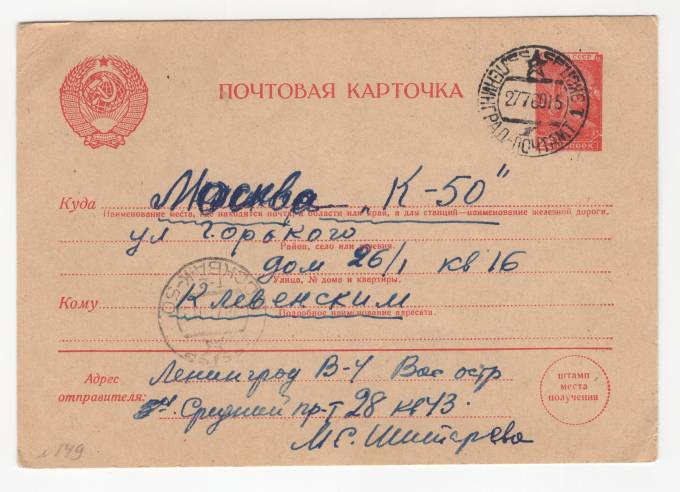 ПОЧТОВАЯ КАРТОЧКА
ЛЕНИНГРАД-ПОЧТАМТ
2776015
Куда Москва „К-50"
Наименование места, где находится почта, и области или края, а для станций—наименование железной дороги,
ул Горького
Район, село или деревня.
дом 26/1 кв 16
Улица, № дома и квартиры.
МОСКВА К-50
Кому Клевенским
Подробное наименование адресата.
Адрес отправителя:
Ленинград В-4 Вас остр
Средний пр-т 28 кв 43.
М.С. Шитарева
штамп
места
получения
149